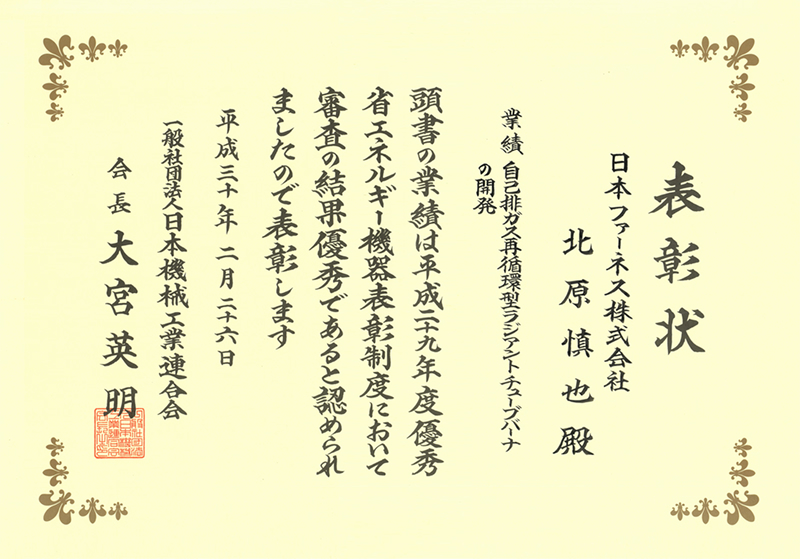 表彰状
日本ファーネス株式会社
北原慎也殿
業績 自己排ガス再循環型ラジアントチューブバーナ
の開発
頭書の業績は平成二十九年度優秀
省エネルギー機器表彰制度において
審査の結果優秀であると認められ
ましたので表彰します
平成三十年 二月二十六日
一般社団法人日本機械工業連合会
会長 大宮英明